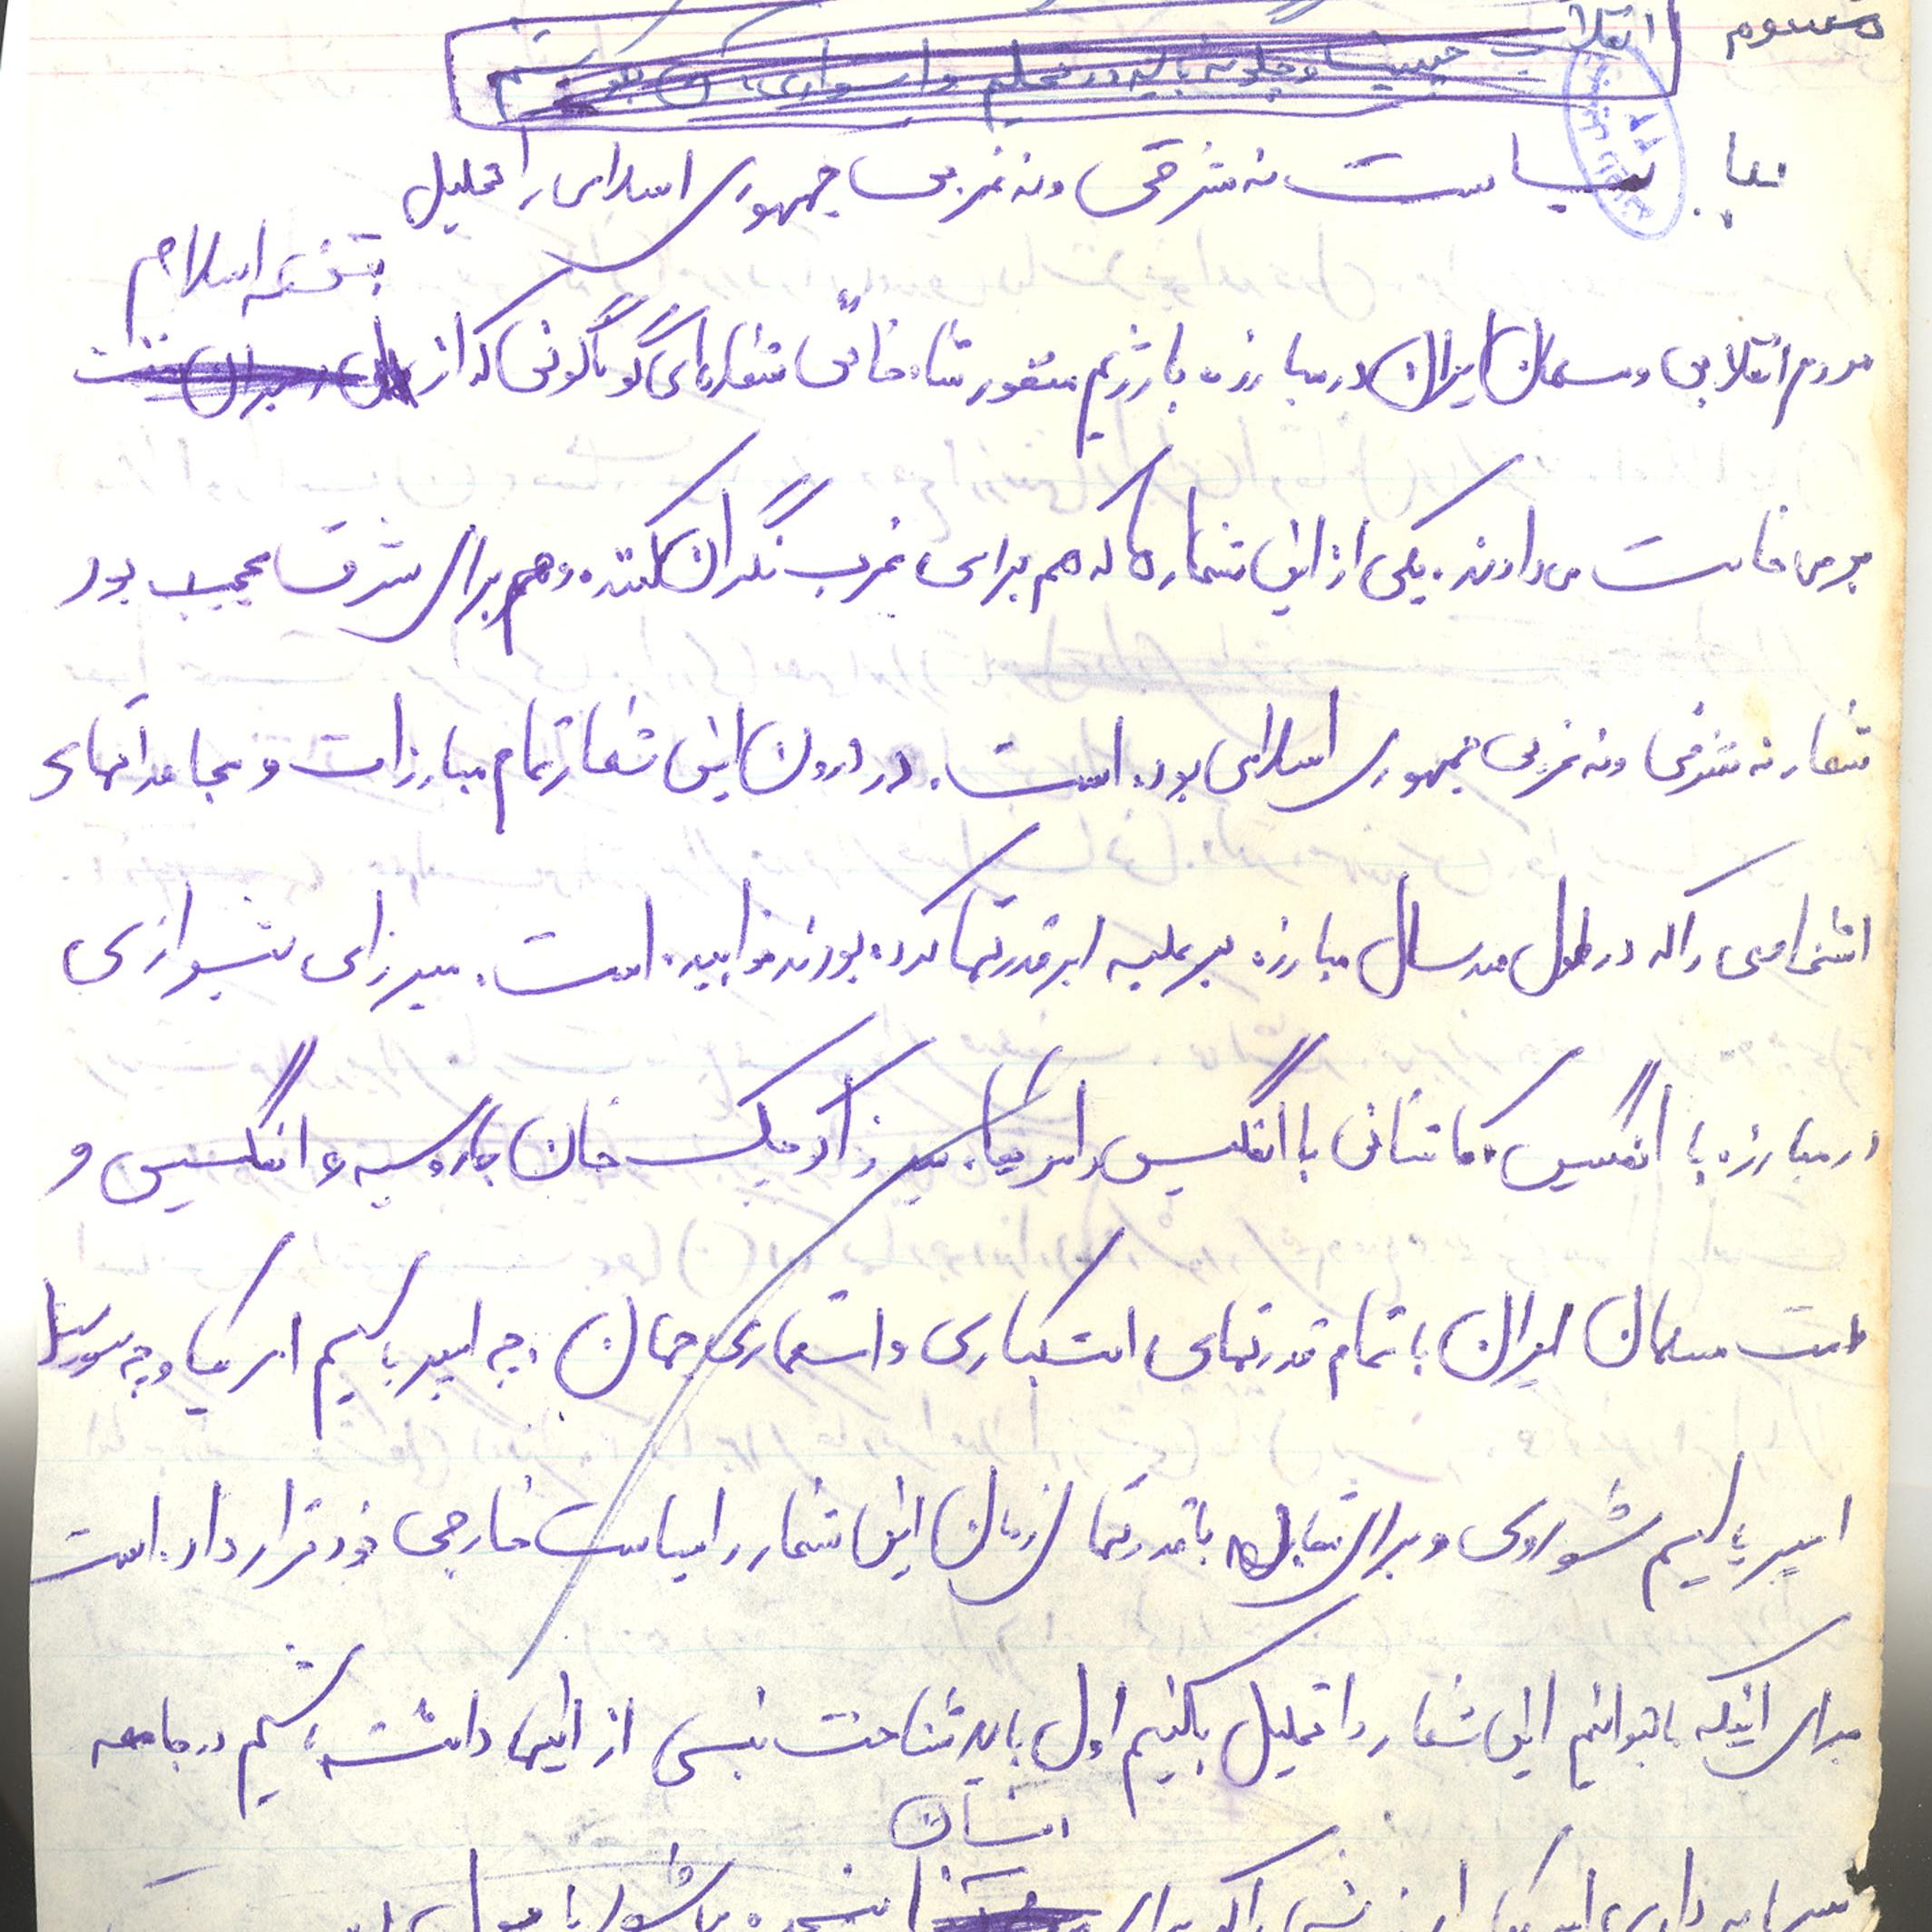 سوم
انقلاب چیست و چگونه باید در مقابل
سیاست نه شرقی و نه غربی جمهوری اسلامی را تحلیل
اسلام
مردم انقلابی و مسلمان ایران در مبارزه با رژیم منفور شاه خائن شعارهای گوناگونی که از
بر می‌خاست می‌دادند. یکی از این شعارها که هم برای غرب نگران کننده و هم برای شرق عجیب بود
شعار نه شرقی و نه غربی جمهوری اسلامی بوده است. در درون این شعار تمام مبارزات و مجاهدتهای
اشخاصی را که در طول صد سال مبارزه بر علیه ابرقدرتها کرده بودند خوابیده است. میرزای شیرازی
در مبارزه با انگلیس، کاشانی با انگلیس و امریکا، میرزا کوچک خان با روسیه و انگلیس و
ملت مسلمان ایران با تمام قدرتهای استکباری و استعماری جهان، چه امپریالیسم امریکا و چه سوسیال
امپریالیسم شوروی و برای مقابله با قدرتهای زمان این شعار را سیاست خارجی خود قرار داده است
برای اینکه بتوانیم این شعار را تحلیل بکنیم اول باید شناخت نسبی از اینها داشته باشیم در جامعه
انسان
سرمایه داری